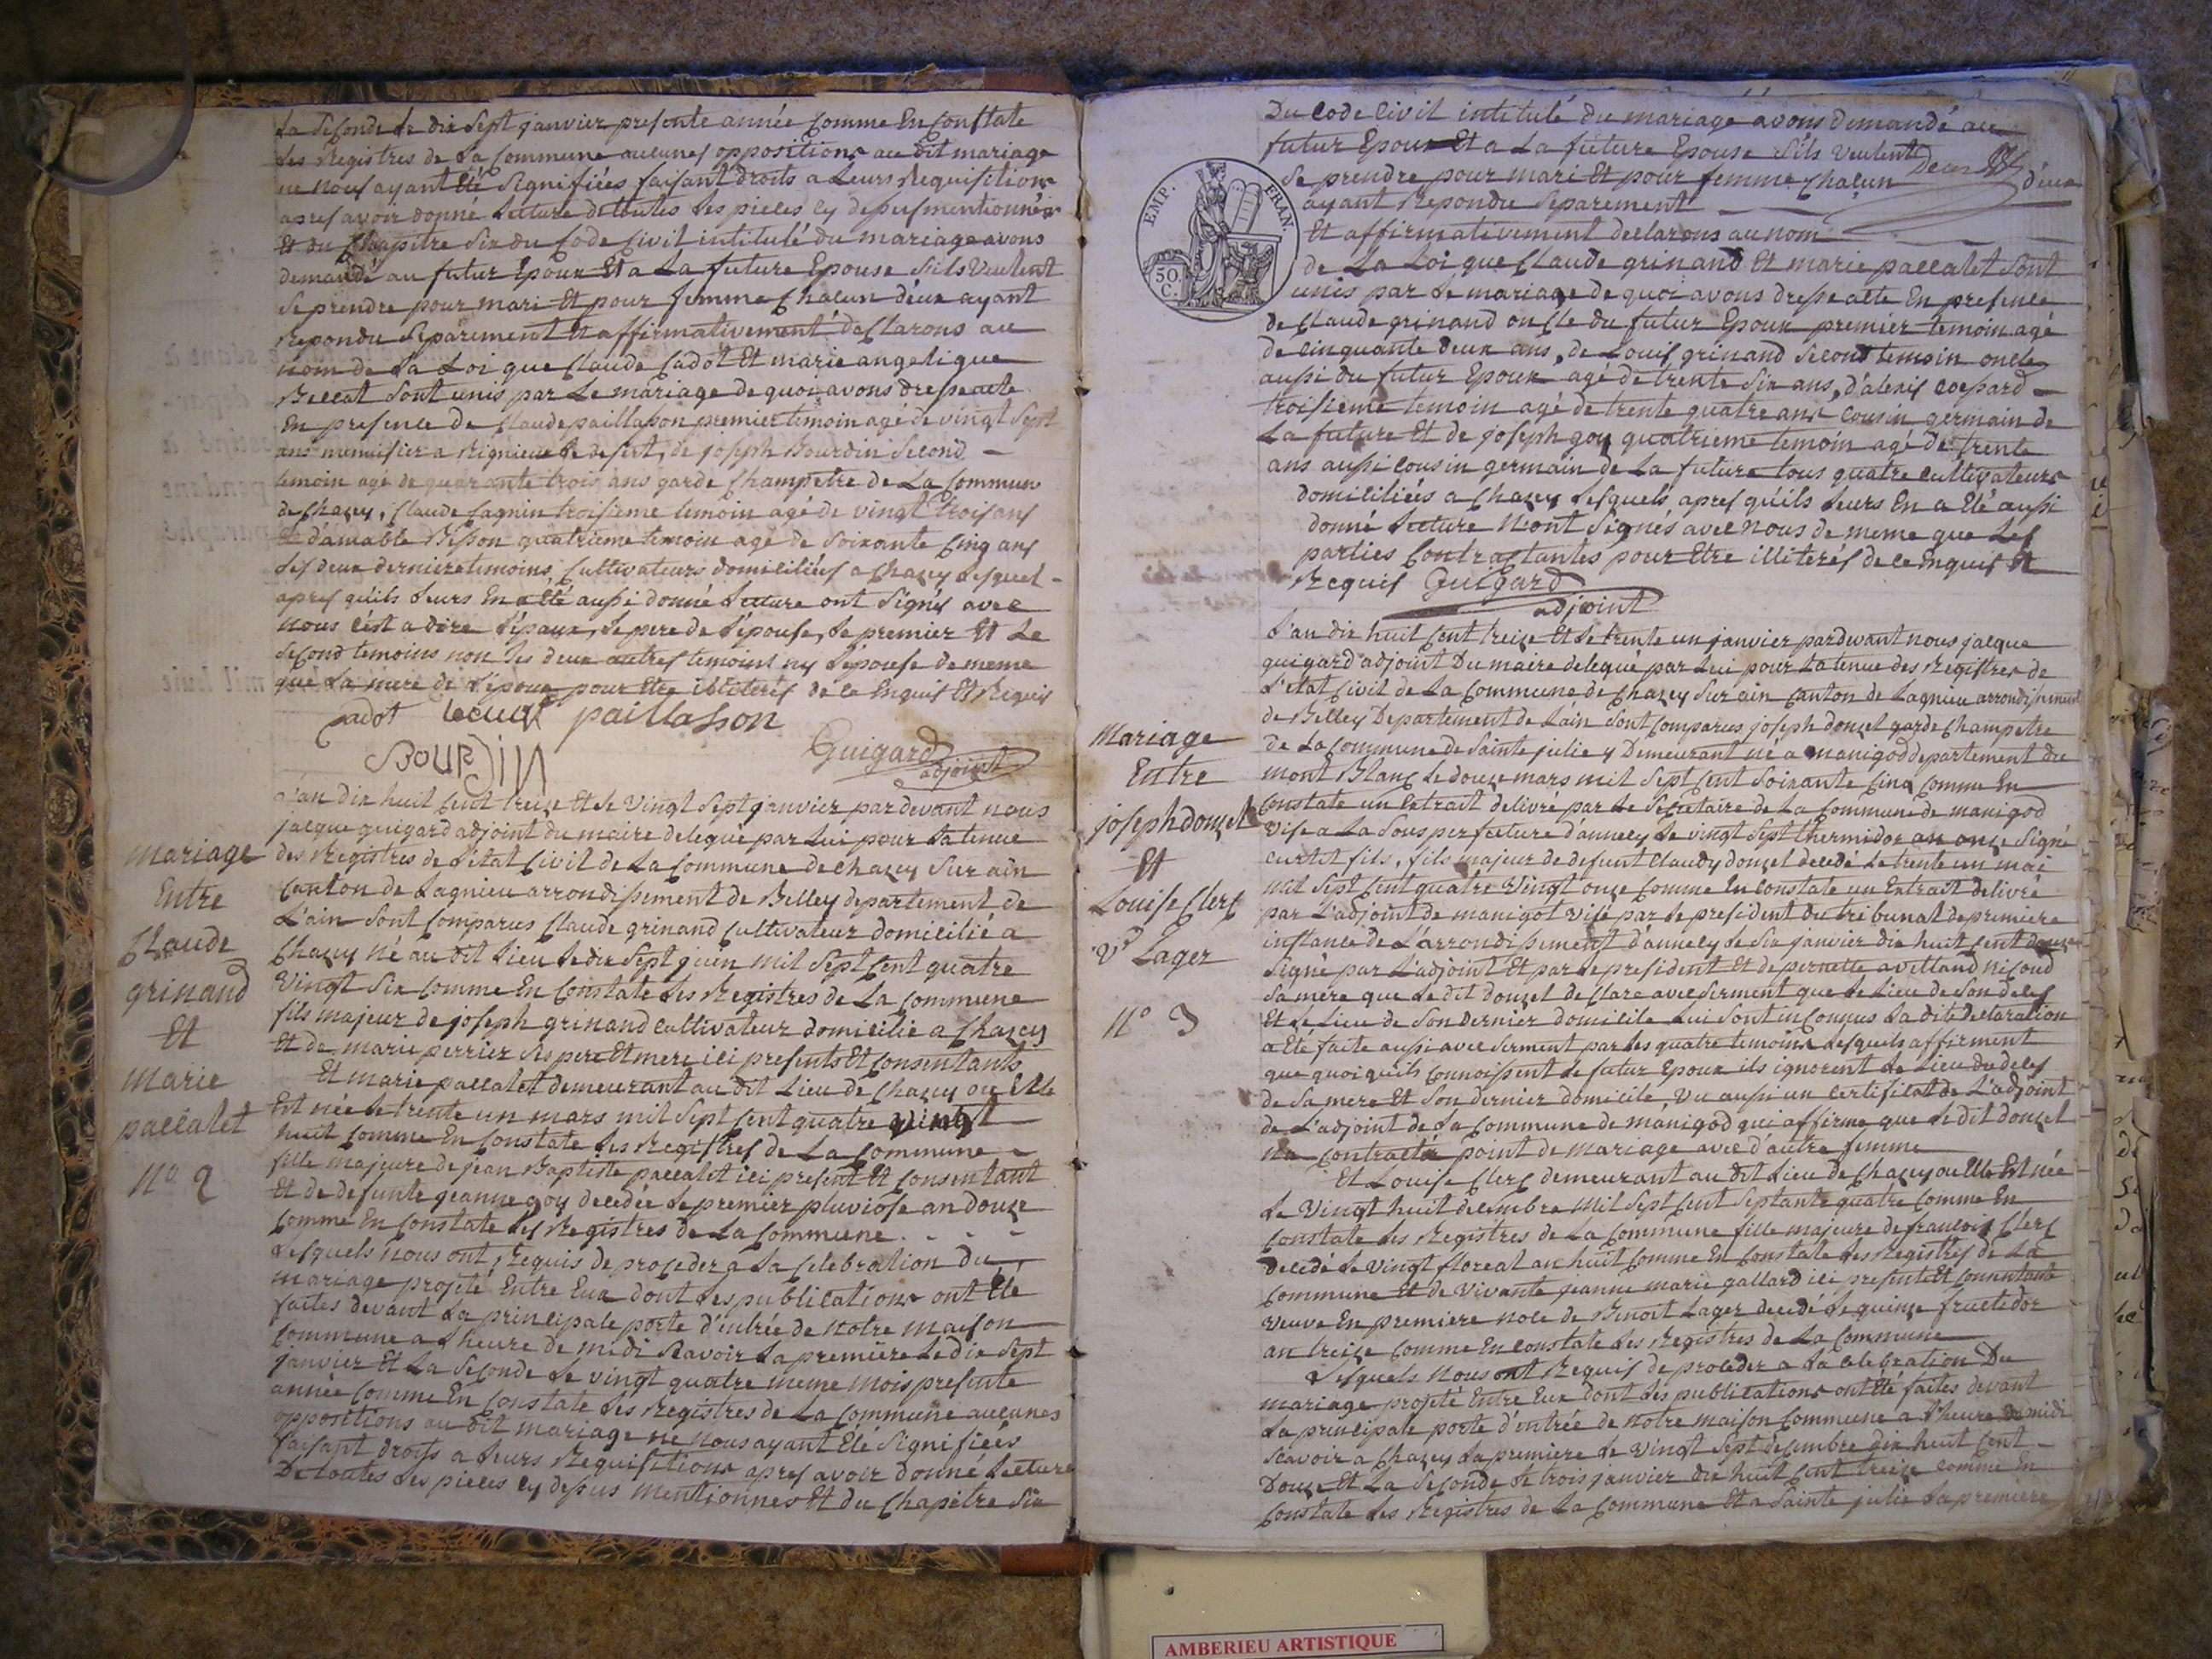 La seconde le dix sept janvier presente année comme En constate
Les Registres de La commune aucunes oppositions au dit mariage
ne nous ayant Eté signifiées faisant droits a Leurs Requisitions
apres avoir donné Lecture de toutes les pieces cy dessus mentionnées
Et du Chapitre six du Code Civil intitulé du mariage avons
demandé au futur Epoux Et a La future Epouse s'ils veulent
se prendre pour mari Et pour femme chacun d'eux ayant
Repondu separement Et affirmativement declarons au
nom de La Loi que Claude Cadot Et marie angelique
sont unis par Le mariage de quoi avons dressé acte
En presence de Claude paillasson premier temoin agé de vingt sept
ans menuisier a Rignieux le desert, de joseph Bourdin second
temoin agé de quarante trois ans garde Champetre de La Commune
de Chazey, Claude Cagnin troisieme temoin agé de vingt trois ans
Et d'amable Bisson quatrieme temoin agé de soixante cinq ans
Les deux derniers temoins Cultivateurs domiciliés a Chazey Lesquel
apres qu'ils Leurs En a Eté aussi donné Lecture ont signés avec
nous c'est a dire L'épaux, Le pere de L'épouse, Le premier Et Le
second temoins non Les deux autres temoins ny L'épouse de meme
que La mere de L'époux pour Etre illiterés de ce Enquis Et Requis
Cadot paillasson
BOURDIN
Guigard
adjoint
L'an dix huit Cent treize Et Le Vingt sept janvier par devant nous
jacque guigard adjoint du maire delegué par Lui pour La tenue
des Registres de L'etat Civil de La Commune de Chazey sur ain
Canton de Lagnieu arrondissement de Belley departement de
L'ain sont Comparus Claude grinand Cultivateur domicilié a
Chazey né au dit Lieu Le dix sept juin mil sept Cent quatre
Vingt six Comme En Constate Les Registres de La Commune
fils majeur de joseph grinand cultivateur domicilié a Chazey
Et de marie perrier ses pere Et mere ici presents Et consentants
Et marie pallatet demeurant au dit Lieu de Chazey ou Elle
Est née Le trente un mars mil sept Cent quatre vingt
huit Comme En Constate Les Registres de La Commune
fille majeure de jean Baptiste pallatet ici present Et consentant
Et de defunte jeanne goy decedée Le premier pluviose an douze
Comme En Constate Les Registres de La Commune
Lesquels nous ont Requis de proceder a La Celebration du
mariage projeté Entre Eux dont Les publications ont Eté
faites devant La principale porte d'entrée de notre maison
Commune a L'heure de midi savoir La premiere Le dix sept
janvier Et La seconde Le vingt quatre meme mois presente
année Comme En Constate Les Registres de La Commune aucunes
oppositions au dit mariage ne nous ayant Eté signifiées
faisant droits a Leurs Requisitions apres avoir donné Lecture
De toutes Les pieces cy dessus mentionnées Et du Chapitre six
mariage
Entre
Claude
grinand
Et
marie
pallatet
N° 2
Du Code Civil intitulé du mariage avons demandé au
futur Epoux Et a La future Epouse s'ils veulent
se prendre pour mari Et pour femme chacun d'eux
ayant Repondu separement
Et affirmativement declarons au nom
de La Loi que Claude grinand Et marie pallatet sont
unis par Le mariage de quoi avons dressé acte En presence
de Claude grinand oncle du futur Epoux premier temoin agé
de cinquante deux ans, de Louis grinand second temoin oncle
aussi du futur Epoux agé de trente six ans, d'alexis
troisieme temoin agé de trente quatre ans cousin germain de
La future Et de joseph goy quatrieme temoin agé de trente
ans aussi cousin germain de La future tous quatre cultivateurs
domiciliés a Chazey Lesquels apres qu'ils Leurs En a Eté aussi
donné Lecture N'ont signés avec nous de meme que Les
parties Contractantes pour Etre illiterés de ce Enquis Et
Requis Guigard
adjoint
EMP. FRAN.
50 C.
L'an dix huit Cent treize Et Le trente un janvier pardevant nous jacque
guigard adjoint Du maire delegué par Lui pour La tenue des Registres de
L'état Civil de La Commune de Chazey sur ain Canton de Lagnieu arrondissement
de Belley Departement de L'ain sont Comparus joseph donzel garde Champetre
de La Commune de Sainte julie y Demeurant né a manigod departement du
mont Blanc Le douze mars mil sept Cent soixante Cinq Comme En
Constate un Extrait delivré par Le secretaire de La Commune de manigod
visé a La sous perfecture d'annecy Le vingt sept thermidor an onze signé
curtet fils, fils majeur de defunt Claudy donzel decedé Le trente un mai
mil sept Cent quatre Vingt onze Comme En Constate un Extrait delivré
par L'adjoint de manigot visé par Le president du tribunal de premiere
instance de L'arrondissement d'annecy Le six janvier dix huit Cent
signé par L'adjoint Et par Le president Et de pernette
sa mere que Le dit donzel declare avec serment que Le Lieu de son deces
Et Le Lieu de son dernier domicile Lui sont inconnus La dite declaration
a Eté faite aussi avec serment par Les quatre temoins Lesquels affirment
que quoi qu'ils connoissent Le futur Epoux ils ignorent Le Lieu du deces
de sa mere Et son dernier domicile Vu aussi un certificat de L'adjoint
de L'adjoint de La Commune de manigod qui affirme que Le dit donzel
n'a contracté point de mariage avec d'autre femme
Et Louise Clerc demeurant au dit Lieu de Chazey ou Elle Est née
Le Vingt huit decembre mil sept Cent septante quatre Comme En
Constate Les Registres de La Commune fille majeure de francois Clerc
decedé Le vingt floreal an huit Comme En Constate Les Registres de La
Commune Et de Vivante jeanne marie gallard ici presente Et Consentante
veuve En premiere noce de Benoit Lager decedé Le quinze fructidor
an treize Comme En Constate Les Registres de La Commune
Lesquels nous ont Requis de proceder a La celebration Du
mariage projeté Entre Eux dont Les publications ont Eté faites devant
La principale porte d'entrée de notre maison Commune a L'heure de midi
scavoir a Chazey La premiere Le vingt sept decembre dix huit Cent
Douze Et La seconde Le trois janvier dix huit Cent treize comme En
Constate Les Registres de La Commune Et a Sainte julie La premiere
Mariage
Entre
joseph donzel
Et
Louise Clerc
Ve Lager
N° 3
AMBERIEU ARTISTIQUE